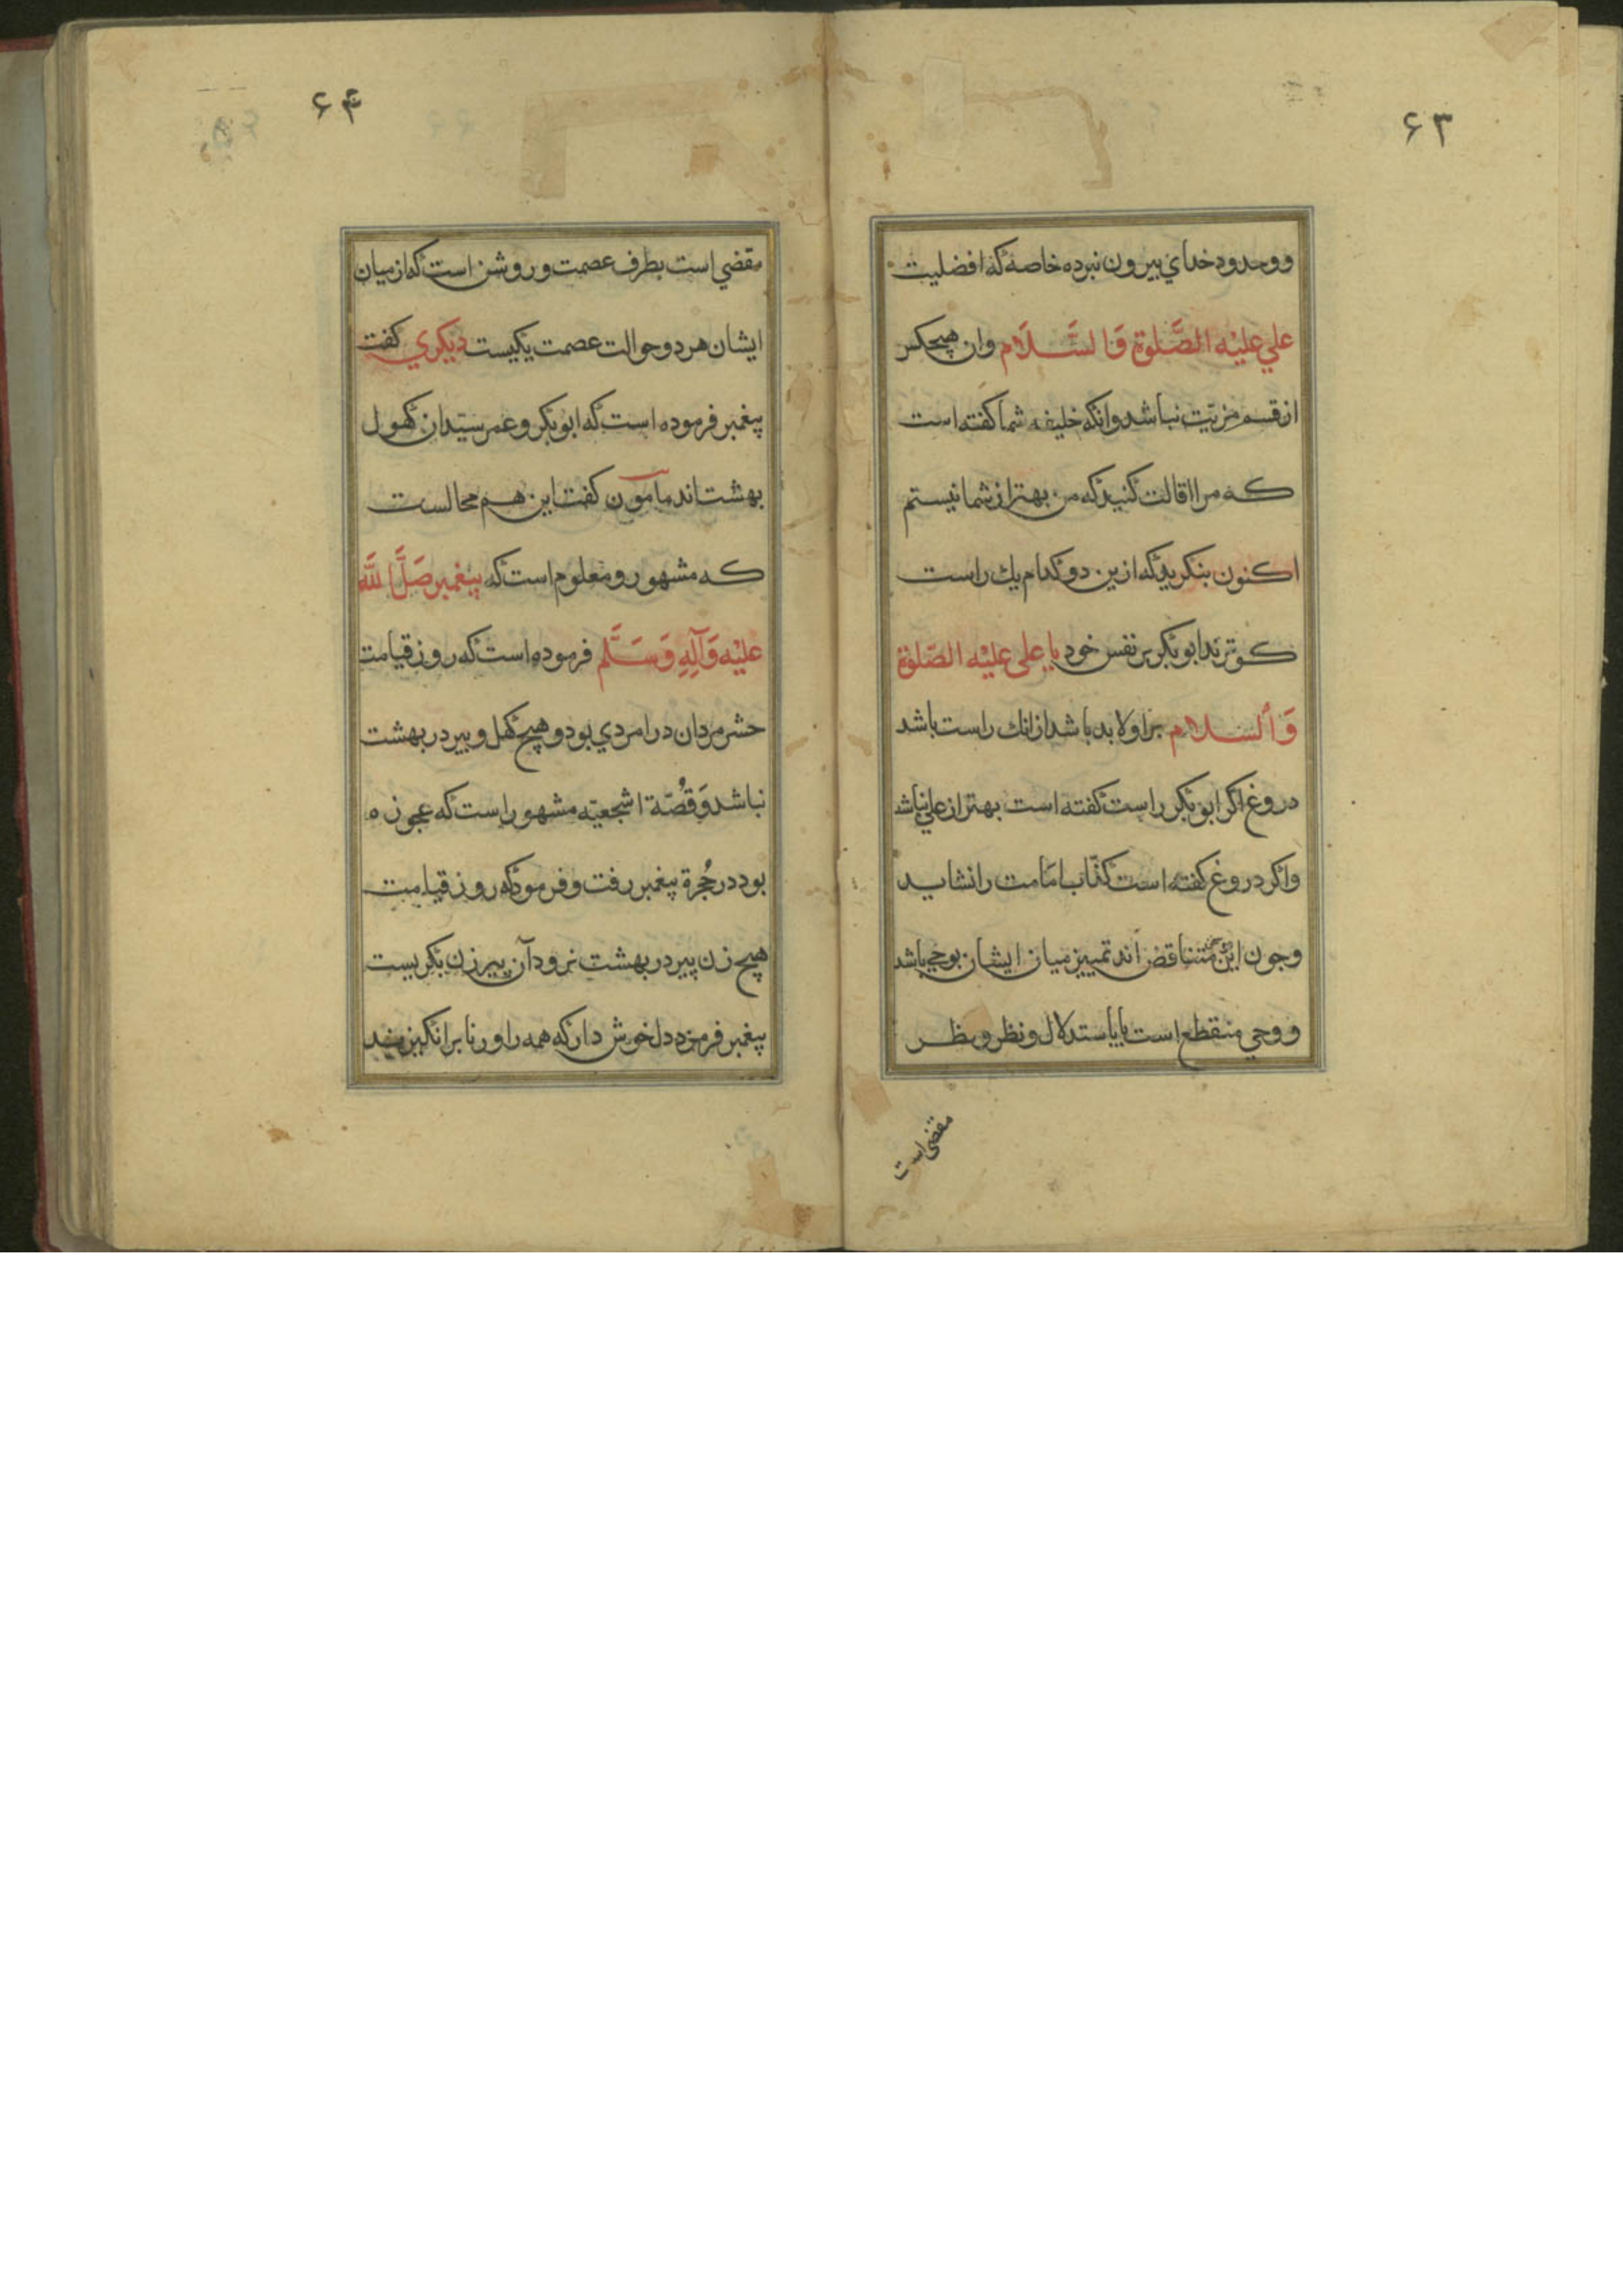 ۶۳
ووحدود خدای بیرون نبرده خاصه که افضلیت
علي عليْه الصَّلوة وَالسَّلَام وان هیچکس
از قسم مزیّت نباشد وانکه خلیفه شما کفته است
که مرا اقالت کنید که من بهتر از شما نیستم
اکنون بنکرید که ازین دو کدام یك راست
کوترند ابوبکر بر نفس خود یا علی علیْه الصّلوة
وَالسلام برا ولابد باشد از انك راست باشد
دروغ اکر ابوبکر راست کفته است بهتر از علی نباشد
واکر دروغ کفته است کذّاب امَامت را نشاید
وچون این متناقض اند تمییز میان ایشان بوحي باشد
ووحي منقطع است یا باستدلال ونظر ونظر
مقضی است
۶۴
مقضي است بطرف عصمت وروشن است که از میان
ایشان هر دو حوالت عصمت یکیست دیکري کفت
پیغمبر فرموده است که ابوبکر وعمر سیّدان کهول
بهشت اند مامون کفت این هم محالست
که مشهور ومعلوم است که پیغمبر صَلَّ الله
علیْه وَآلِهِ وَسَلَّم فرموده است که روز قیامت
حشر مردان در امردي بود وهیچ کهل و پیر در بهشت
نباشد وَقصُّة اشجعیّه مشهور است که عجوزه
بود در حُجرة پیغمبر رفت وفرمود که روز قیامت
هیچ زن پیر در بهشت نرود آن پیر زن بکریست
پیغمبر فرمود دل خوش دار که همه را ورنا برانکیزند